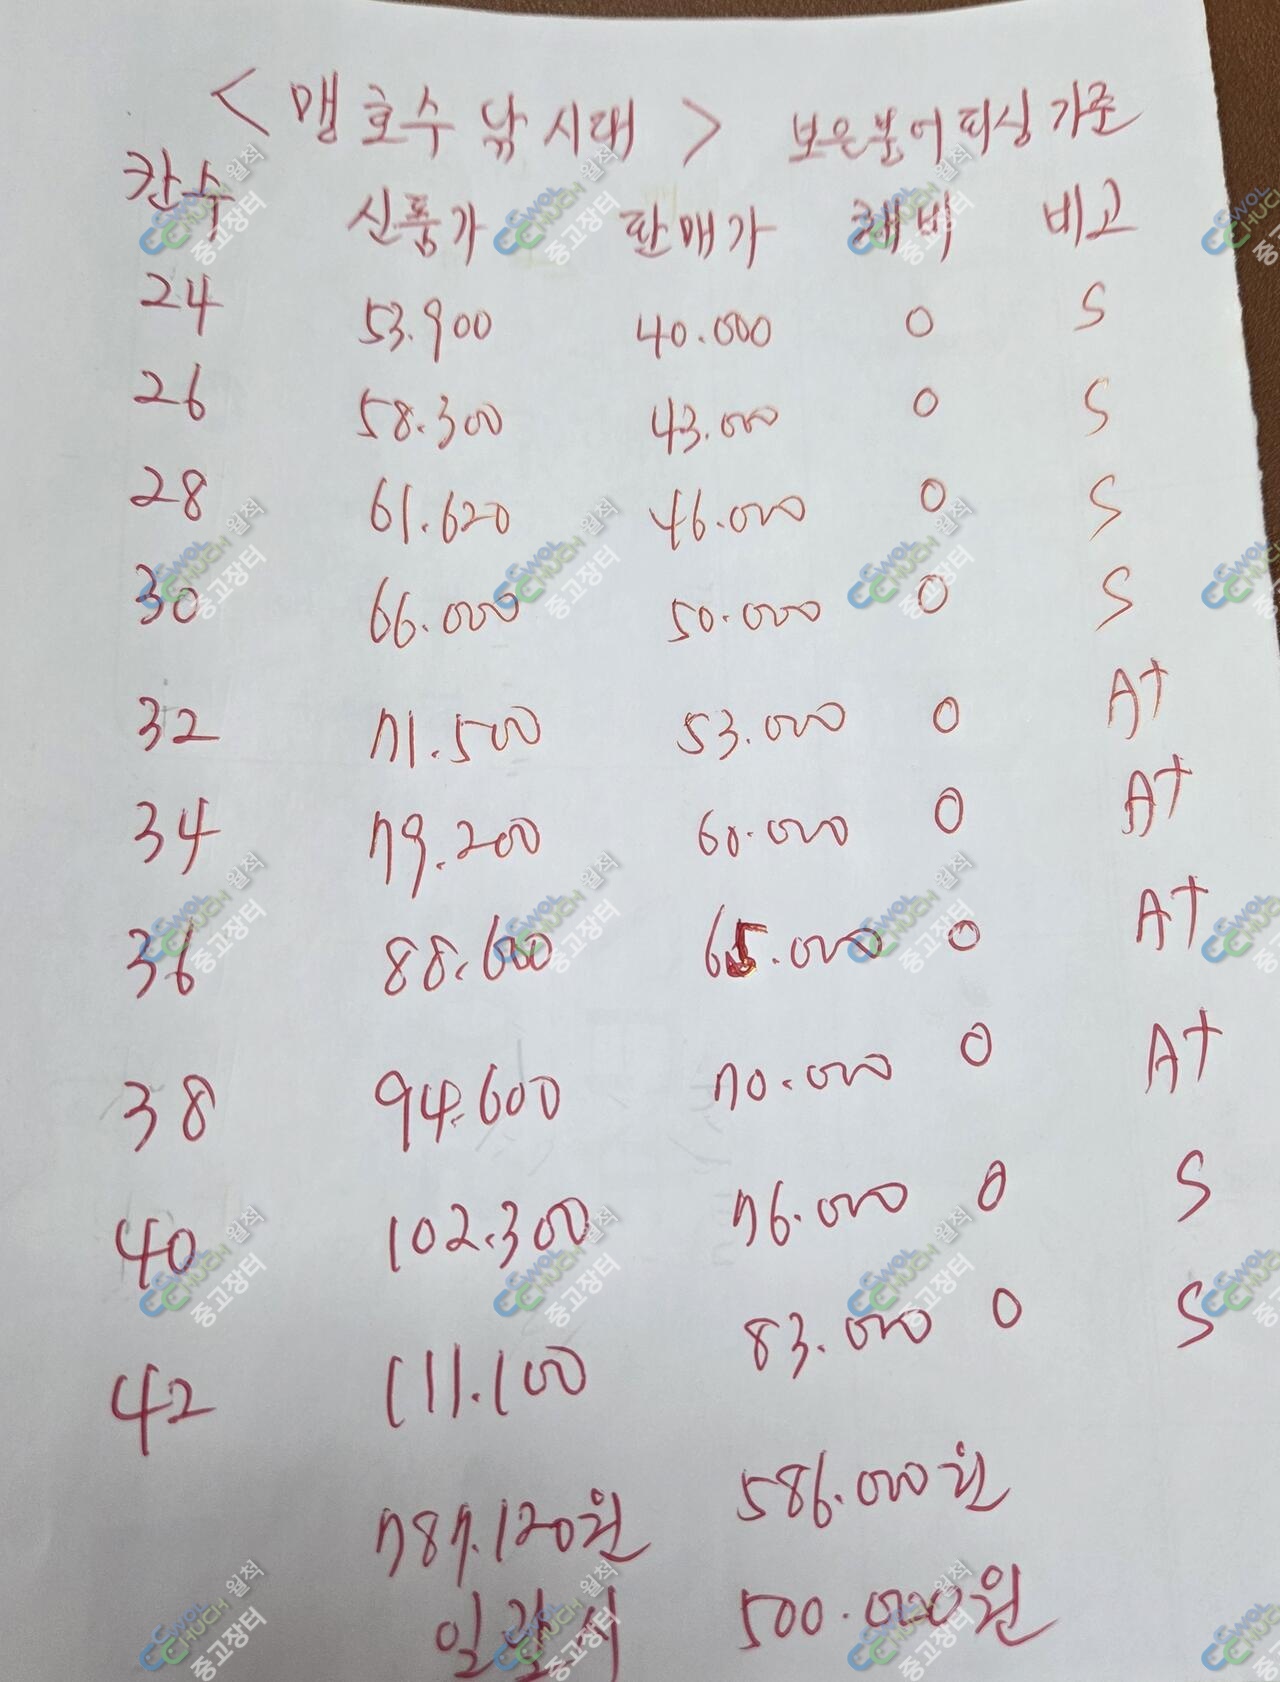 < 맹호수 낚시대 > 보은붕어피싱 기준
칸수 신품가 판매가 채비 비고
24 53.900 40.000 0 S
26 58.300 43.000 0 S
28 61.620 46.000 0 S
30 66.000 50.000 0 S
32 71.500 53.000 0 A+
34 79.200 60.000 0 A+
36 88.600 65.000 0 A+
38 94.600 70.000 0 A+
40 102.300 76.000 0 S
42 111.100 83.000 0 S
787.120원 586.000원
일괄시 500.000원
CWOL CHUCH 월척 중고장터